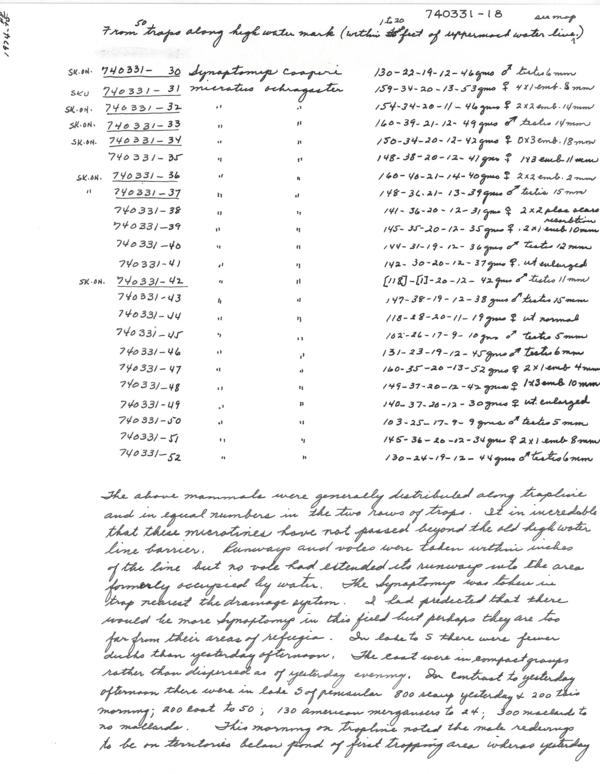 740331-18 see map
From 50 traps along high water mark (within 1 to 20 feet of uppermost water line)
SK.ON. 740331- 30 Synaptomys cooperi 130-22-19-12-46gms ♂ testis 6mm
SKU 740331-31 microtus ochrogaster 159-34-20-13-53gms ♀ 4x1 emb. 9mm
SK.ON. 740331-32 " " 154-34-20-11-46gms ♀ 2x2 emb. 14mm
SK.ON. 740331-33 " " 160-39-21-12-49gms ♂ testis 14mm
SK.ON. 740331-34 " " 150-34-20-12-42gms ♀ 0x3 emb. 18mm
740331-35 " " 148-38-20-12-41gms ♀ 1x3 emb 11mm
SK.ON. 740331-36 " " 160-40-21-14-40gms ♀ 2x2 emb. 2mm
" 740331-37 " " 148-36-21-13-39gms ♂ testis 15mm
740331-38 " " 141-36-20-12-31gms ♀ 2x2 plac scars resorbtion
740331-39 " " 145-35-20-12-35gms ♀ 2x1 emb 10mm
740331-40 " " 144-31-19-12-36gms ♂ testis 12mm
740331-41 " " 142-30-20-12-37gms ♀ ut enlarged
SK.ON. 740331-42 " " [118]-[1]-20-12-42gms ♂ testis 11mm
740331-43 " " 147-38-19-12-38gms ♂ testis 15mm
740331-44 " " 118-28-20-11-19gms ♀ ut normal
740331-45 " " 102-26-17-9-10gms ♂ testis 5mm
740331-46 " " 131-23-19-12-45gms ♂ testis 6mm
740331-47 " " 160-35-20-13-52gms ♀ 2x1 emb 4mm
740331-48 " " 149-37-20-12-42gms ♀ 1x3 emb 10mm
740331-49 " " 140-37-20-12-30gms ♀ ut enlarged
740331-50 " " 103-25-17-9-9gms ♂ testis 5mm
740331-51 " " 145-36-20-12-34gms ♀ 2x1 emb 8mm
740331-52 " " 130-24-19-12-44gms ♂ testis 6mm
The above mammals were generally distributed along trapline
and in equal numbers in the two rows of traps. It in incredable
that these microtines have not passed beyond the old high water
line barrier. Runways and voles were taken within inches
of the line but no vole had extended its runways into the area
formerly occupied by water. The Synaptomys was taken in
trap nearest the drainage system. I had predected that there
would be more Synaptomys in this field but perhaps they are too
far from their areas of refugia. In lake to S there were fewer
ducks than yesterday afternoon. The coot were in compact groups
rather than dispersed as of yesterday evening. In contrast to yesterday
afternoon there were in lake S of peninsular 800 scaup yesterday & 200 this
morning; 200 coot to 50; 130 american mergansers to 24; 300 mallards to
no mallards. This morning on trapline noted the male redwings
to be on territories below pond of first trapping area wheras yesterday